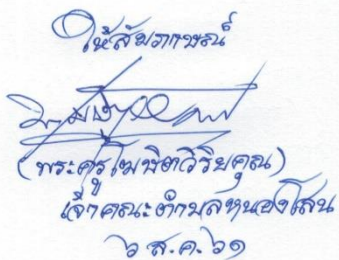 ให้สัมภาษณ์
(พระครูโฆษิตวิริยคุณ)
เจ้าคณะตำบลหนองโสน
๖ ส.ค. ๖๑